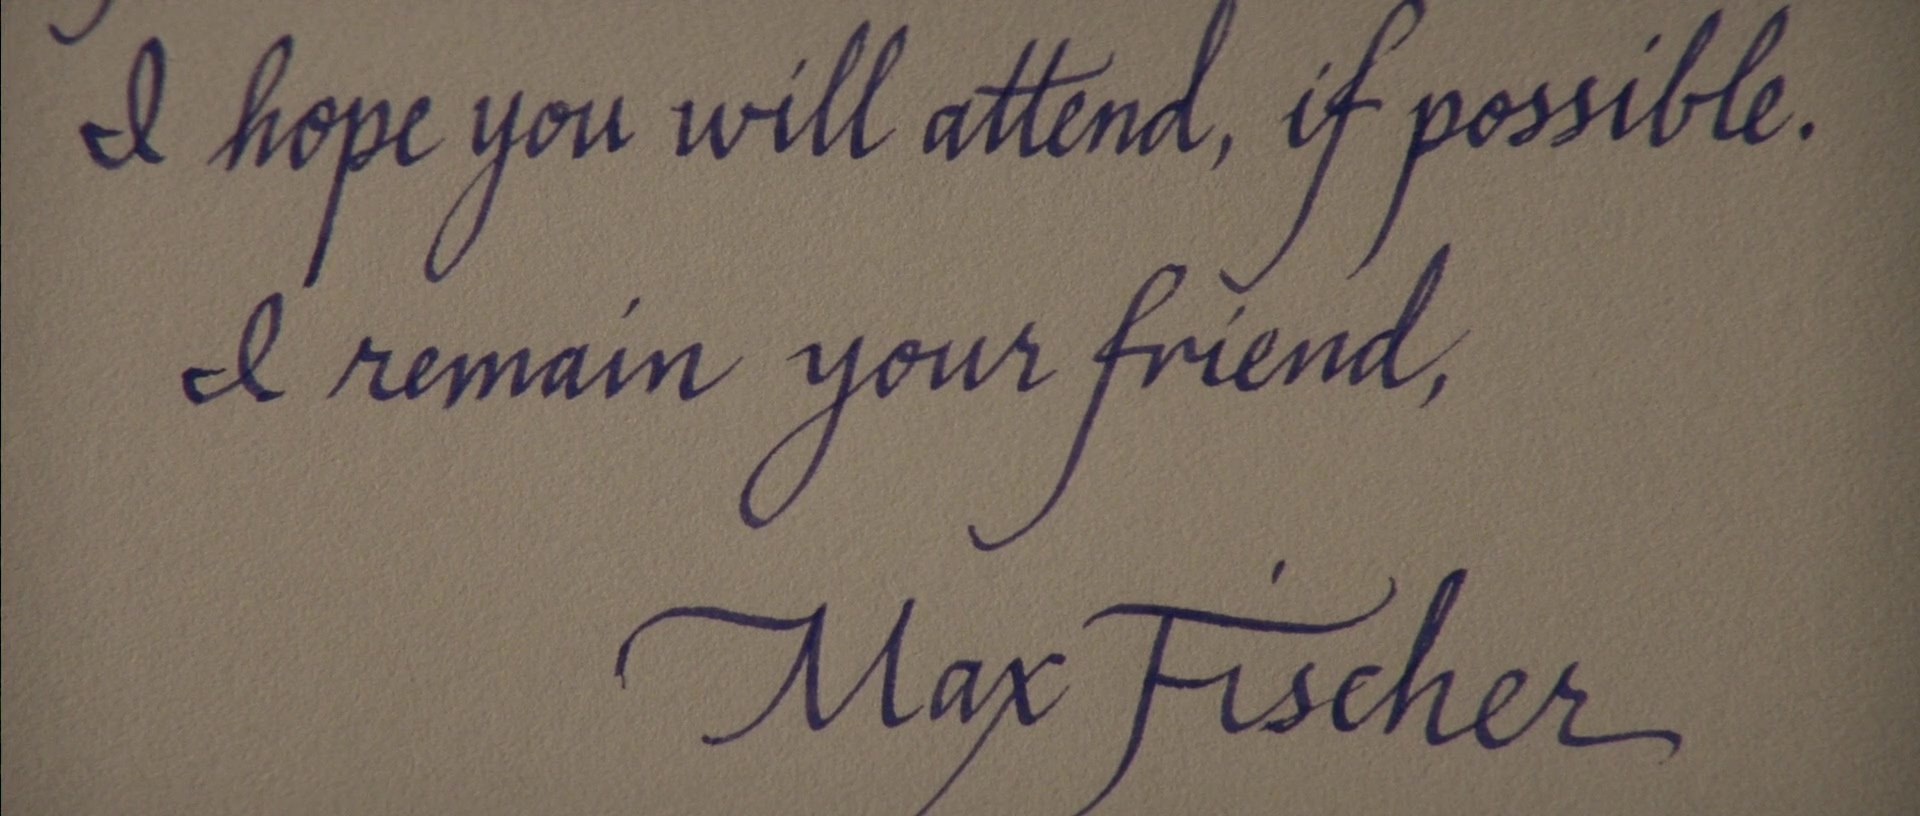 I hope you will attend, if possible.
I remain your friend,
Max Fischer